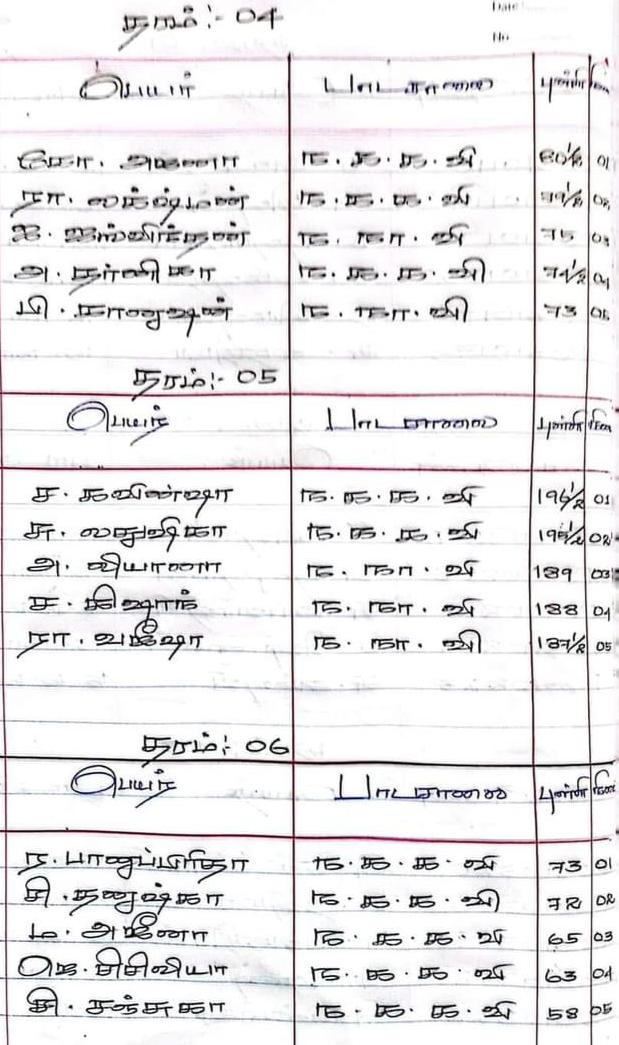 Date
No
தரம்:- 04
பெயர் பாடசாலை புள்ளி நிலை
கோ. அக்ஷனா ந. க. க. வி 80½ 01
நா. லக்ஷ்மன் ந. க. க. வி 79½ 02
ஐ. ஐஸ்விந்தன் ந. நா. வி 75 03
அ. தர்ஸிகா ந. க. க. வி 74½ 04
பி. தானுஷன் ந. நா. வி 73 05
தரம்:- 05
பெயர் பாடசாலை புள்ளி நிலை
ச. கவின்ஷா ந. க. க. வி 196½ 01
சு. லதுஷிகா ந. க. க. வி 195½ 02
அ. வியானா ந. நா. வி 189 03
ச. கிஷாந் ந. நா. வி 188 04
நா. ந. நா. வி 187½ 05
தரம்:- 06
பெயர் பாடசாலை புள்ளி நிலை
ந. பானுப்பிரிதா ந. க. க. வி 73 01
சி. தனுஷ்கா ந. க. க. வி 72 02
ம. அக்ஷனா ந. க. க. வி 65 03
ஜெ. சிசிலியா ந. க. க. வி 63 04
சி. சஞ்சுகா ந. க. க. வி 58 05